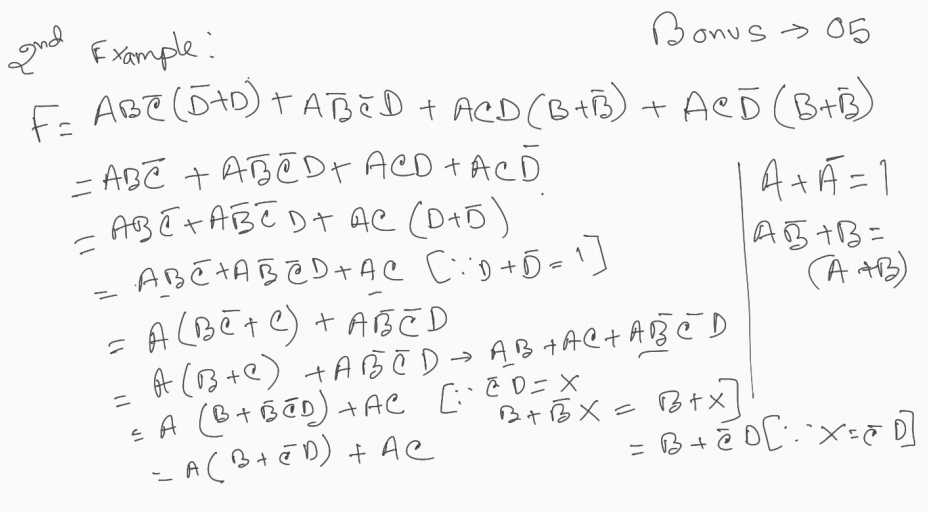 2nd Example:
Bonus → 05
F = ABC̄(D̄+D) + AB̄C̄D + ACD(B+B̄) + ACD̄(B+B̄)
= ABC̄ + AB̄C̄D + ACD + ACD̄
= ABC̄ + AB̄C̄D + AC(D+D̄)
= ABC̄ + AB̄C̄D + AC [∵ D+D̄=1]
= A(BC̄+C) + AB̄C̄D
= A(B+C) + AB̄C̄D → AB + AC + AB̄C̄D
= A(B+B̄C̄D) + AC [∵ C̄D=X
B+B̄X = B+X]
= A(B+C̄D) + AC
= B+C̄D [∵ X=C̄D]
A+Ā=1
AB̄+B=
(A+B)